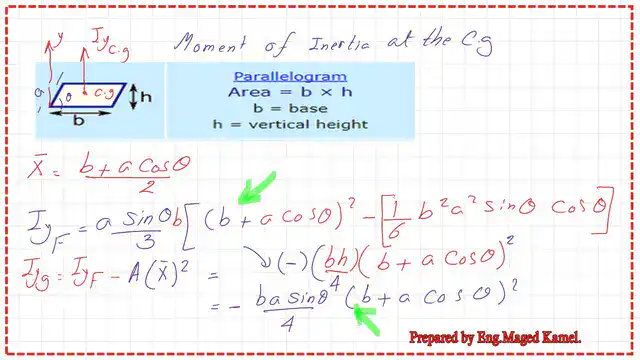 Moment of Inertia at the C.g
y
Iy C.g
a
θ
C.g
h
b
Parallelogram
Area = b × h
b = base
h = vertical height
X̄ = b + a Cosθ / 2
Iy_F = a sinθ b / 3 [ (b + a cosθ)² - [ 1/6 b² a² sinθ cosθ ]
Iy_g = Iy_F - A(x̄)² = (-) (bh/4) (b + a cosθ)²
= - b a sinθ / 4 (b + a cosθ)²
Prepared by Eng.Maged Kamel.